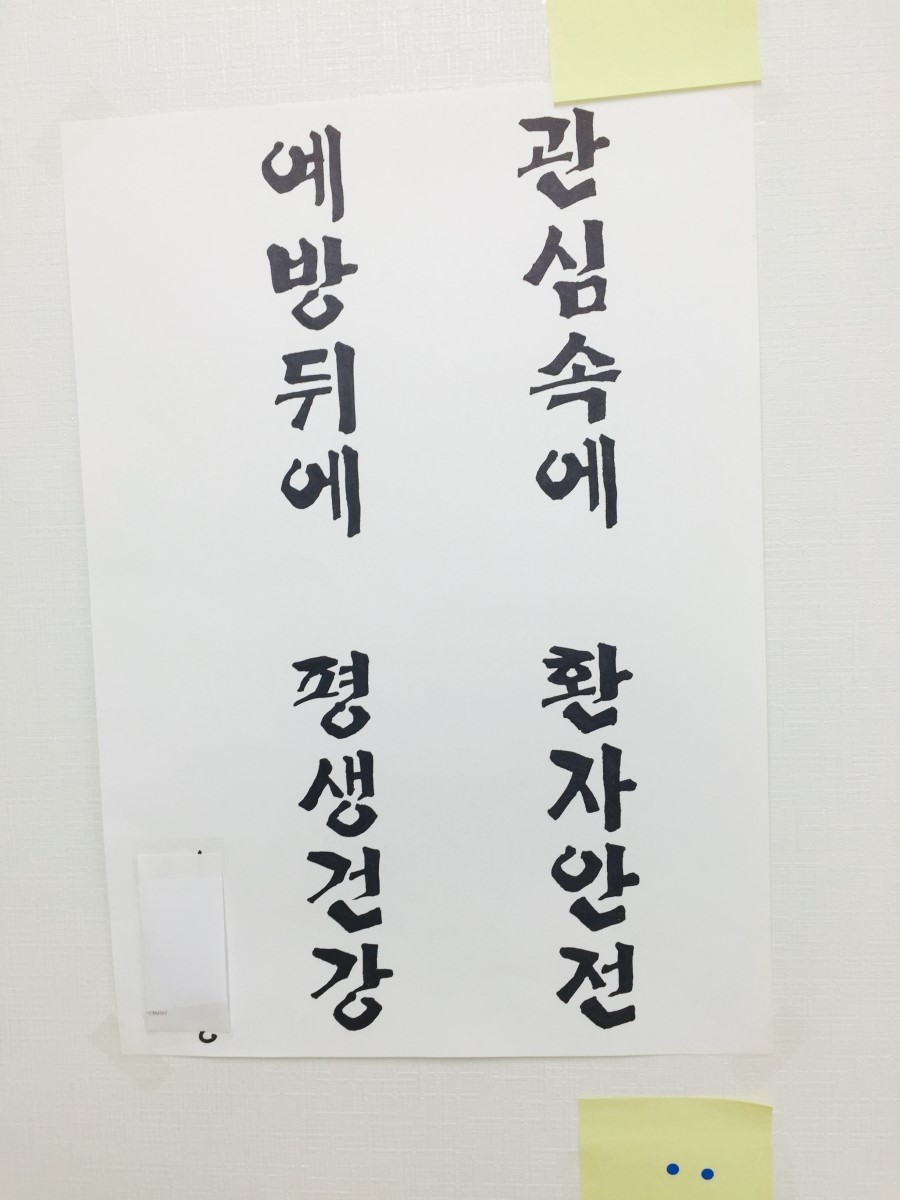 관심속에 환자안전
예방뒤에 평생건강